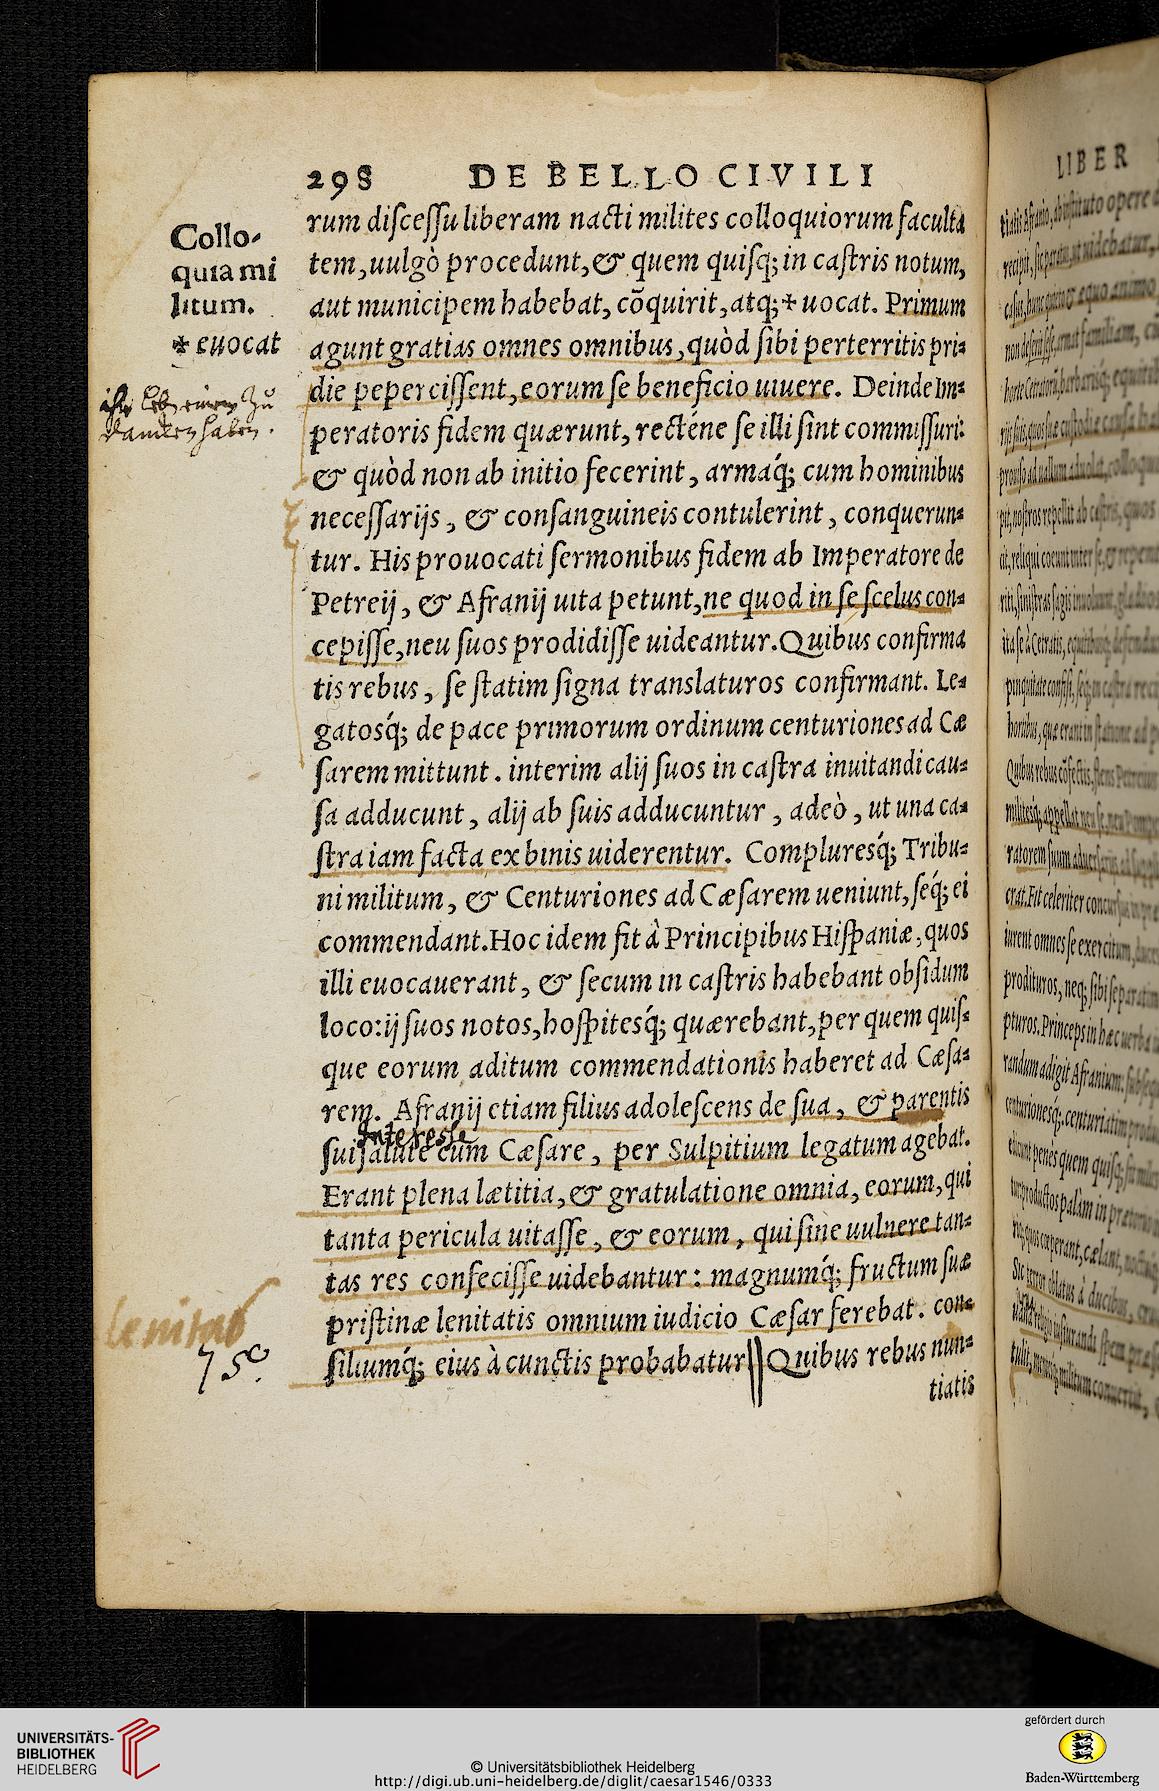 298 DE BELLO CIVILI
rum diſceſſu liberam nacti milites colloquiorum faculta
tem, uulgò procedunt, & quem quiſq; in caſtris notum,
aut municipem habebat, cõquirit, atq; ✠ uocat. Primum
agunt gratias omnes omnibus, quòd ſibi perterritis pri-
die peperciſſent, eorum ſe beneficio uiuere. Deinde Im-
peratoris fidem quærunt, recténe ſe illi ſint commiſſuri:
& quòd non ab initio fecerint, armaq́; cum hominibus
neceſſarijs, & conſanguineis contulerint, conquerun-
tur. His prouocati ſermonibus fidem ab Imperatore de
Petreij, & Afranij uita petunt, ne quod in ſe ſcelus con-
cepiſſe, neu ſuos prodidiſſe uideantur. Quibus confirma
tis rebus, ſe ſtatim ſigna translaturos confirmant. Le-
gatosq́; de pace primorum ordinum centuriones ad Cæ
ſarem mittunt. interim alij ſuos in caſtra inuitandi cau-
ſa adducunt, alij ab ſuis adducuntur, adeò, ut una ca-
ſtra iam facta ex binis uiderentur. Compluresq́; Tribu-
ni militum, & Centuriones ad Cæſarem ueniunt, ſeq́; ei
commendant. Hoc idem fit à Principibus Hiſpaniæ, quos
illi euocauerant, & ſecum in caſtris habebant obſidum
loco: ij ſuos notos, hoſpitesq́; quærebant, per quem quiſ-
que eorum aditum commendationis haberet ad Cæſa-
rem. Afranij etiam filius adoleſcens de ſua, & parentis
Interesse
ſui ſalute cum Cæſare, per Sulpitium legatum agebat.
Erant plena lætitia, & gratulatione omnia, eorum, qui
tanta pericula uitaſſe, & eorum, qui ſine uulnere tan-
tas res confeciſſe uidebantur: magnumq́; fructum ſuæ
priſtinæ lenitatis omnium iudicio Cæſar ferebat. con-
ſiliumq́; eius à cunctis probabatur || Quibus rebus nun-
tiatis
Collo-
quia mi
litum.
✠ euocat
ihr Leben einem Zu
dancken haben.
lenitas
75
LIBER
UNIVERSITÄTS-
BIBLIOTHEK
HEIDELBERG
© Universitätsbibliothek Heidelberg
http://digi.ub.uni-heidelberg.de/diglit/caesar1546/0333
gefördert durch
Baden-Württemberg